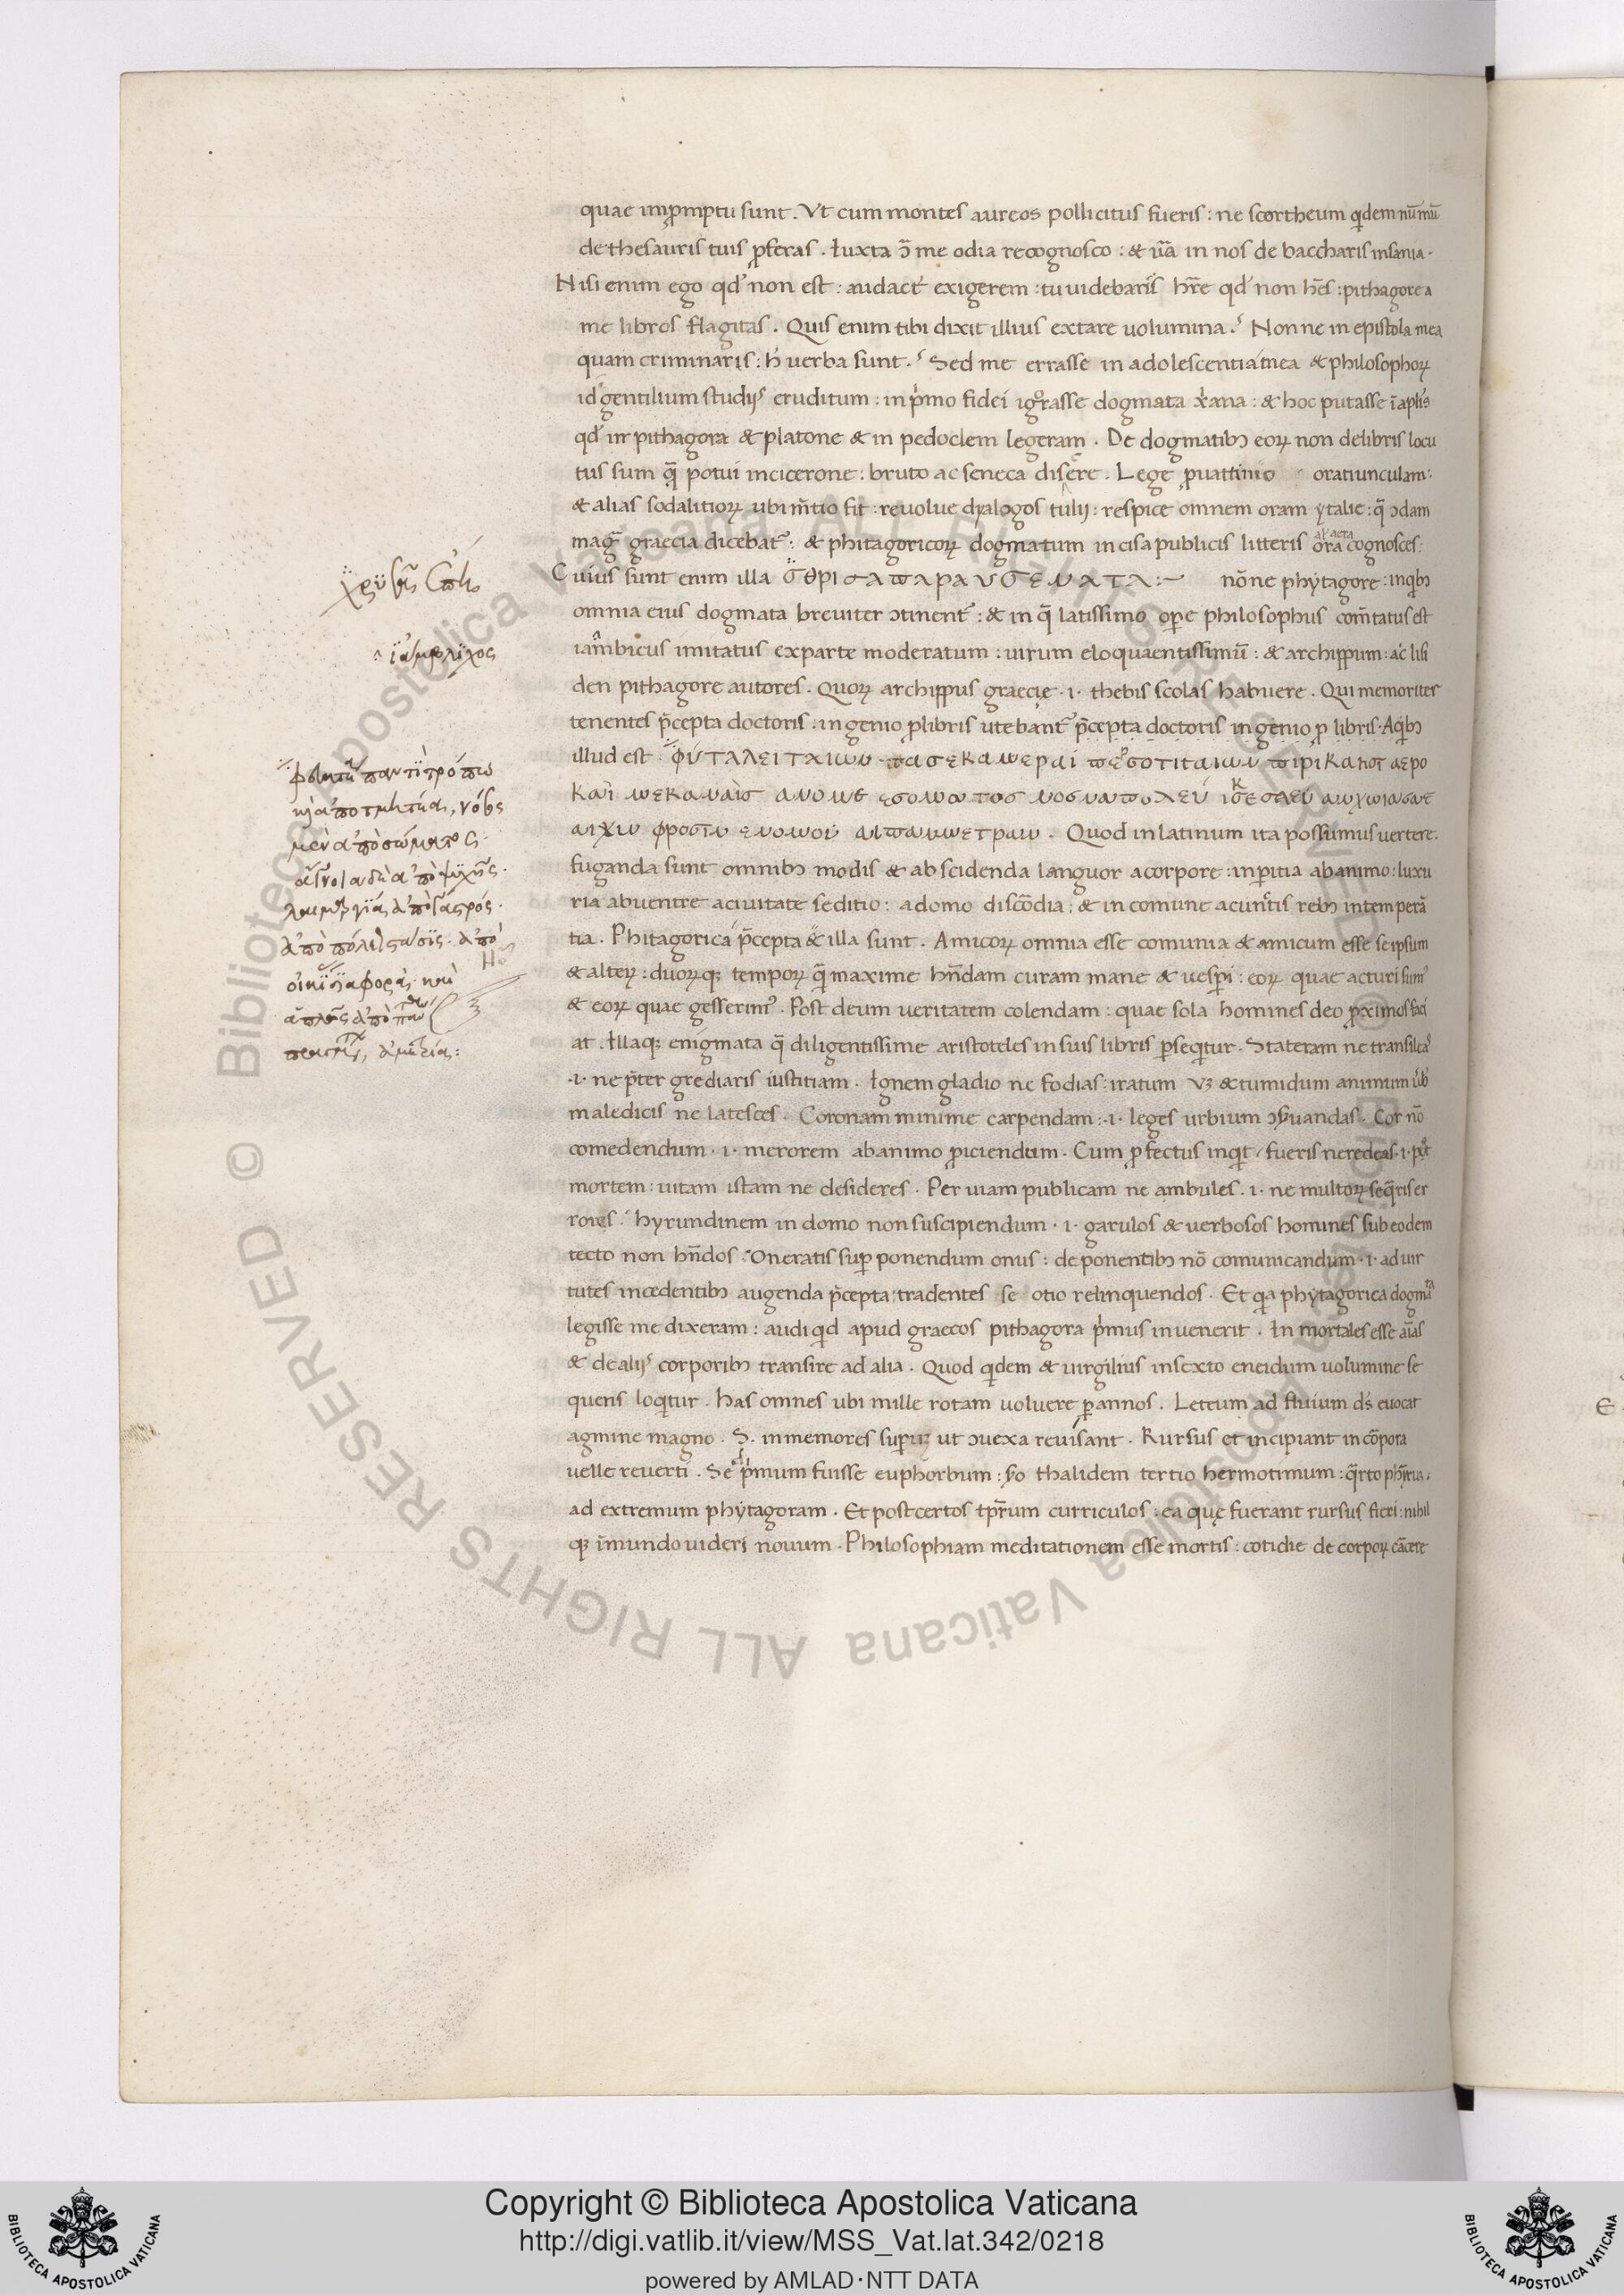 quae īpromptu sunt. Vt cum montes aureos pollicitus fueris: ne scortheum qidem nūmū
de thesauris tuis ꝓferas. Iuxta ɔ̄ me odia recognosco: & ūr̄a in nos de baccharis insania.
Nisi enim ego qd' non est: audact' exigerem: tu uidebaris hr̄e qd' non hēs: pithagorea
me libros flagitas. Quis enim tibi dixit illius extare uolumina. Non ne in epistola mea
quam criminaris: h' verba sunt. Sed me errasse in adolescentia mea & philosophoꝝ
id gentilium studijs eruditum: in pͥmo fidei igͦrasse dogmata xͥana: & hoc putasse ī apl'is
qd' in pithagora & platone & in pedoclem legeram. De dogmatibꝫ eoꝝ non de libris locu
tus sum q̄ potui in cicerone: bruto ac seneca discere. Lege ꝓuattinio oratiunculam:
& alias sodalitioꝝ ubi m̄tio fit: reuolue dyalogos tulij: respice omnem oram ytalie: q̄ ɔdam
mag̃ graecia dicebat᷑: & phitagoricoꝝ dogmatum incisa publicis litteris ora cognosces:
al' aera
Cuius sunt enim illa σθρισαπαραυσεματα:~ nōne phytagore: inqibꝫ
omnia eius dogmata breuiter ɔtinent᷑: & in q̄ latissimo oꝑe philosophus com̄tatus est
iambicus imitatus ex parte moderatum: uirum eloquaentissimū: & archippum: ac lisi
den pithagore autores. Quoꝝ archippus graecię .i. thebis scolas habuere. Qui memoriter
tenentes p̄cepta doctoris: ingenio ꝓ libris utebant᷑ p̄cepta doctoris ingenio ꝓ libris. Aqibꝫ
illud est
Quod in latinum ita possumus vertere.
fuganda sunt omnibꝫ modis & abscidenda languor a corpore: inꝑitia ab animo: luxu
ria a uentre a ciuitate seditio: a domo discōdia: & in comune a cunctis rebꝫ intemperā
tia. Phitagorica p̄cepta & illa sunt. Amicoꝝ omnia esse comunia & amicum esse se ipsum
& alteꝝ: duoꝝqꝫ tempoꝝ q̄ maxime hn̄dam curam mane & uesꝑi: eoꝝ quae acturi sum᷒
& eoꝝ quae gesserim᷒. Post deum veritatem colendam: quae sola homines deo ꝓximos faci
at. Illaqꝫ enigmata q̄ diligentissime aristoteles in suis libris ꝑseqitur. Stateram ne transilias
.i. ne p̄ter grediaris iustitiam. Ignem gladio ne fodias: iratum vꝫ & tumidum animum ūb'
maledicis ne lacesces. Coronam minime carpendam: .i. leges urbium ɔseruandas. Cor nō
comedendum .i. merorem ab animo ꝓiciendum. Cum ꝓfectus inqit fueris ne redeas .i. post
mortem: uitam istam ne desideres. Per uiam publicam ne ambules .i. ne multoꝝ seqͣris er
rores. hyrundinem in domo non suscipiendum .i. garulos & verbosos homines sub eodem
tecto non hn̄dos. Oneratis suꝑ ponendum onus: de ponentibꝫ nō comunicandum .i. ad uir
tutes incedentibꝫ augenda p̄cepta: tradentes se otio relinquendos. Et qͥa phytagorica dogmata
legisse me dixeram: audi qid apud graecos pithagora pͥmus inuenerit. In mortales esse aīas
& de alijs corporibꝫ transire ad alia. Quod qidem & uirgilius in sexto eneidum uolumine se
quens loqitur. has omnes ubi mille rotam uoluere ꝑ annos. Leteum ad fluuium ds euocat
agmine magno. S. in memores suꝑ ut ɔuexa reuisant. Rursus et incipiant in cōpora
uelle reuerti. Se pͥmum fuisse euphorbum: so thalidem tertio hermotimum: qͣrto
ad extremum phytagoram. Et post certos tpr̄um curriculos: ea quę fuerant rursus fieri: nihil
qꝫ ī mundo uideri nouum. Philosophiam meditationem esse mortis: cotidie de corpoꝝ cārcere
ἰάμβλιχος
ἀπὸ ψυχῆς
Copyright © Biblioteca Apostolica Vaticana
http://digi.vatlib.it/view/MSS_Vat.lat.342/0218
powered by AMLAD·NTT DATA
BIBLIOTECA APOSTOLICA VATICANA
BIBLIOTECA APOSTOLICA VATICANA